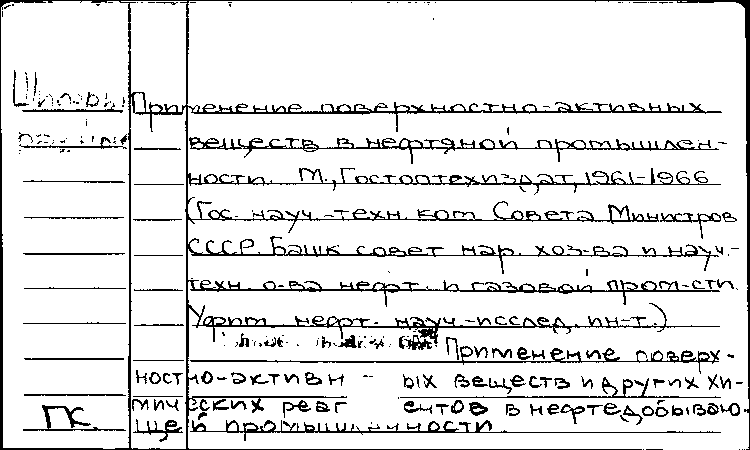 Шифры
Применение поверхностно-активных
веществ в нефтяной промышлен-
ности. М., Гостоптехиздат, 1961-1966
(Гос. науч.-техн. ком Совета Министров
СССР. Башк совет нар. хоз-ва и науч.-
техн. о-ва нефт. и газовой пром-сти.
Уфим. нефт. науч.-исслед. ин-т.)
Применение поверх-
ностно-активн - ых веществ и других хи-
мических реаг ентов в нефтедобываю-
ГК щей промышленности.